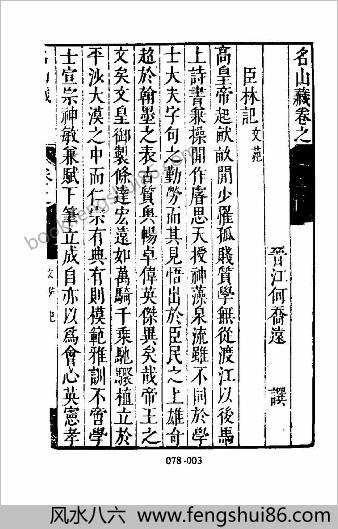 名山藏卷之
晉江何喬遠 譔
臣林記 文苑
高皇帝起畎畝間少罹孤賤質學無從渡江以後馬
上詩書兼操間作睿思天授神藻泉流雖不同於學
士大夫字句之勤勞而其見悟出於臣民之上雄奇
超於翰墨之表古質奧暢卓偉英傑異矣哉帝王之
文矣文皇御製條達宏遠如萬騎千乘馳驟植立於
平沙大漠之中而仁宗有典有則模範雅訓不啻學
士宣宗神敏兼賦下筆立成自亦以為會心英憲孝
文苑記
078-003
bookfengshui86.com
风水八六 © www.fengshui86.com